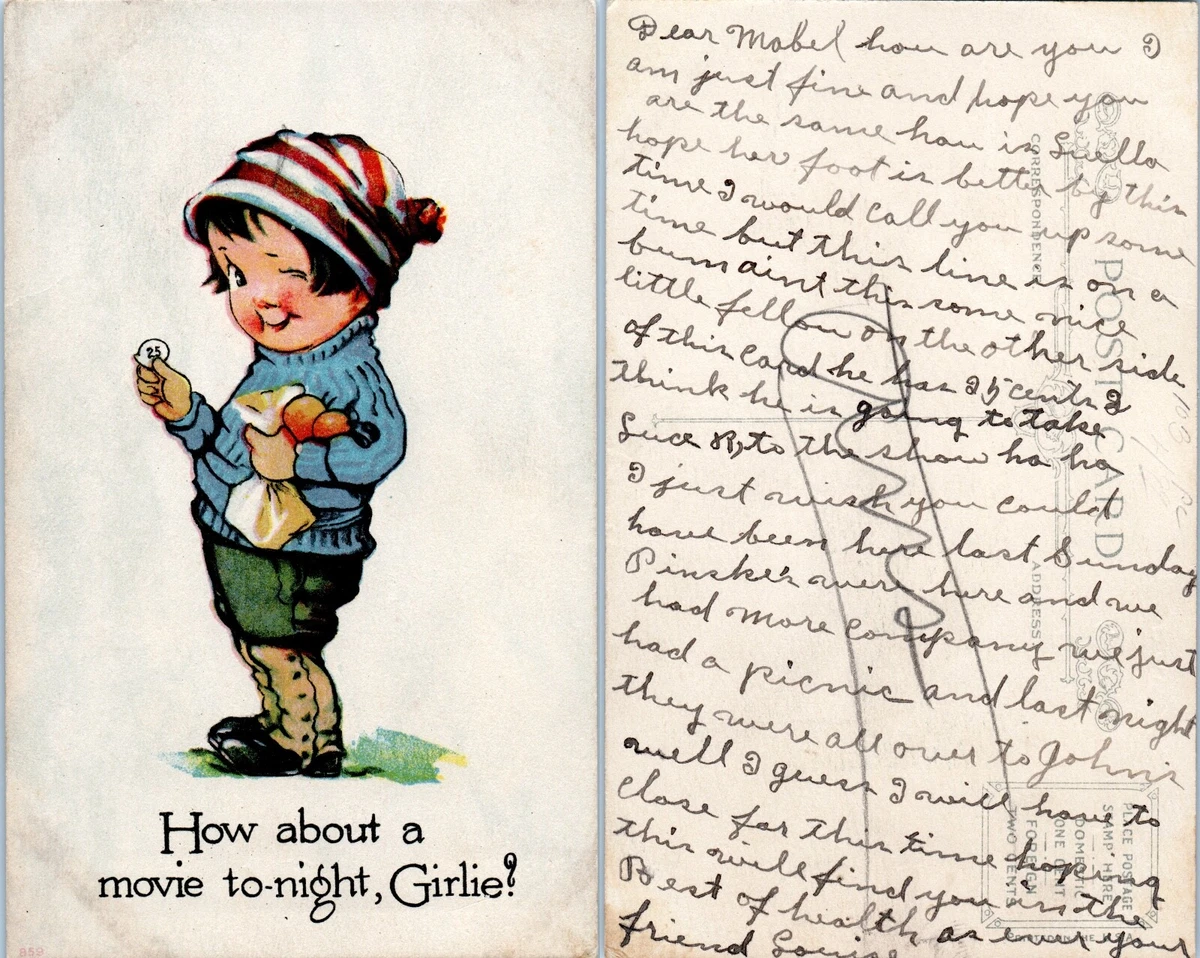 25
How about a
movie to-night, Girlie?
859
Dear Mabel how are you I
am just fine and hope you
are the same how is Luella
hope her foot is better by this
time I would call you up some
time but this line is on a
bum aint this some nice
little fellow on the other side
of this card he has 25 cents I
think he is going to take
to the show ha ha
I just wish you could
have been here last Sunday
Pinske's were here and we
had more company we just
had a picnic and last night
they were all over to John's
well I guess I will have to
close for this time hoping
this will find you in the
Best of health as ever your
friend Louise
POST CARD
CORRESPONDENCE
ADDRESS
PLACE POSTAGE
STAMP HERE
DOMESTIC
ONE CENT
FOREIGN
TWO CENTS